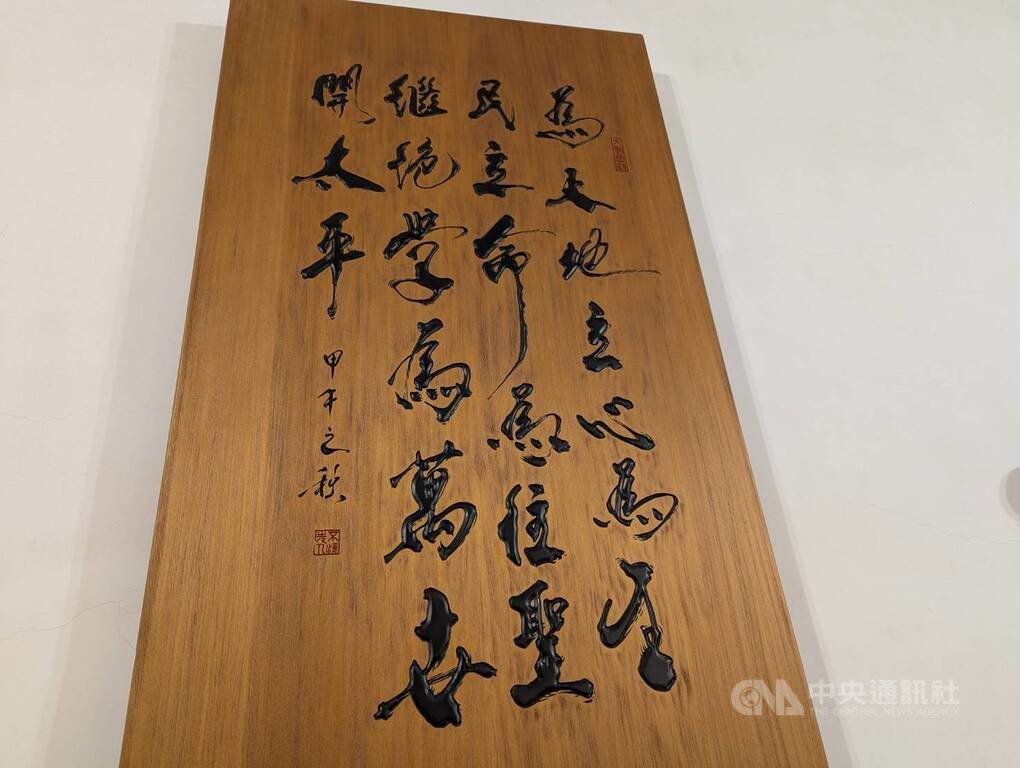 為天地立心為生
民立命為往聖
繼絕學為萬世
開太平
甲午之秋
CNA 中央通訊社
THE CENTRAL NEWS AGENCY